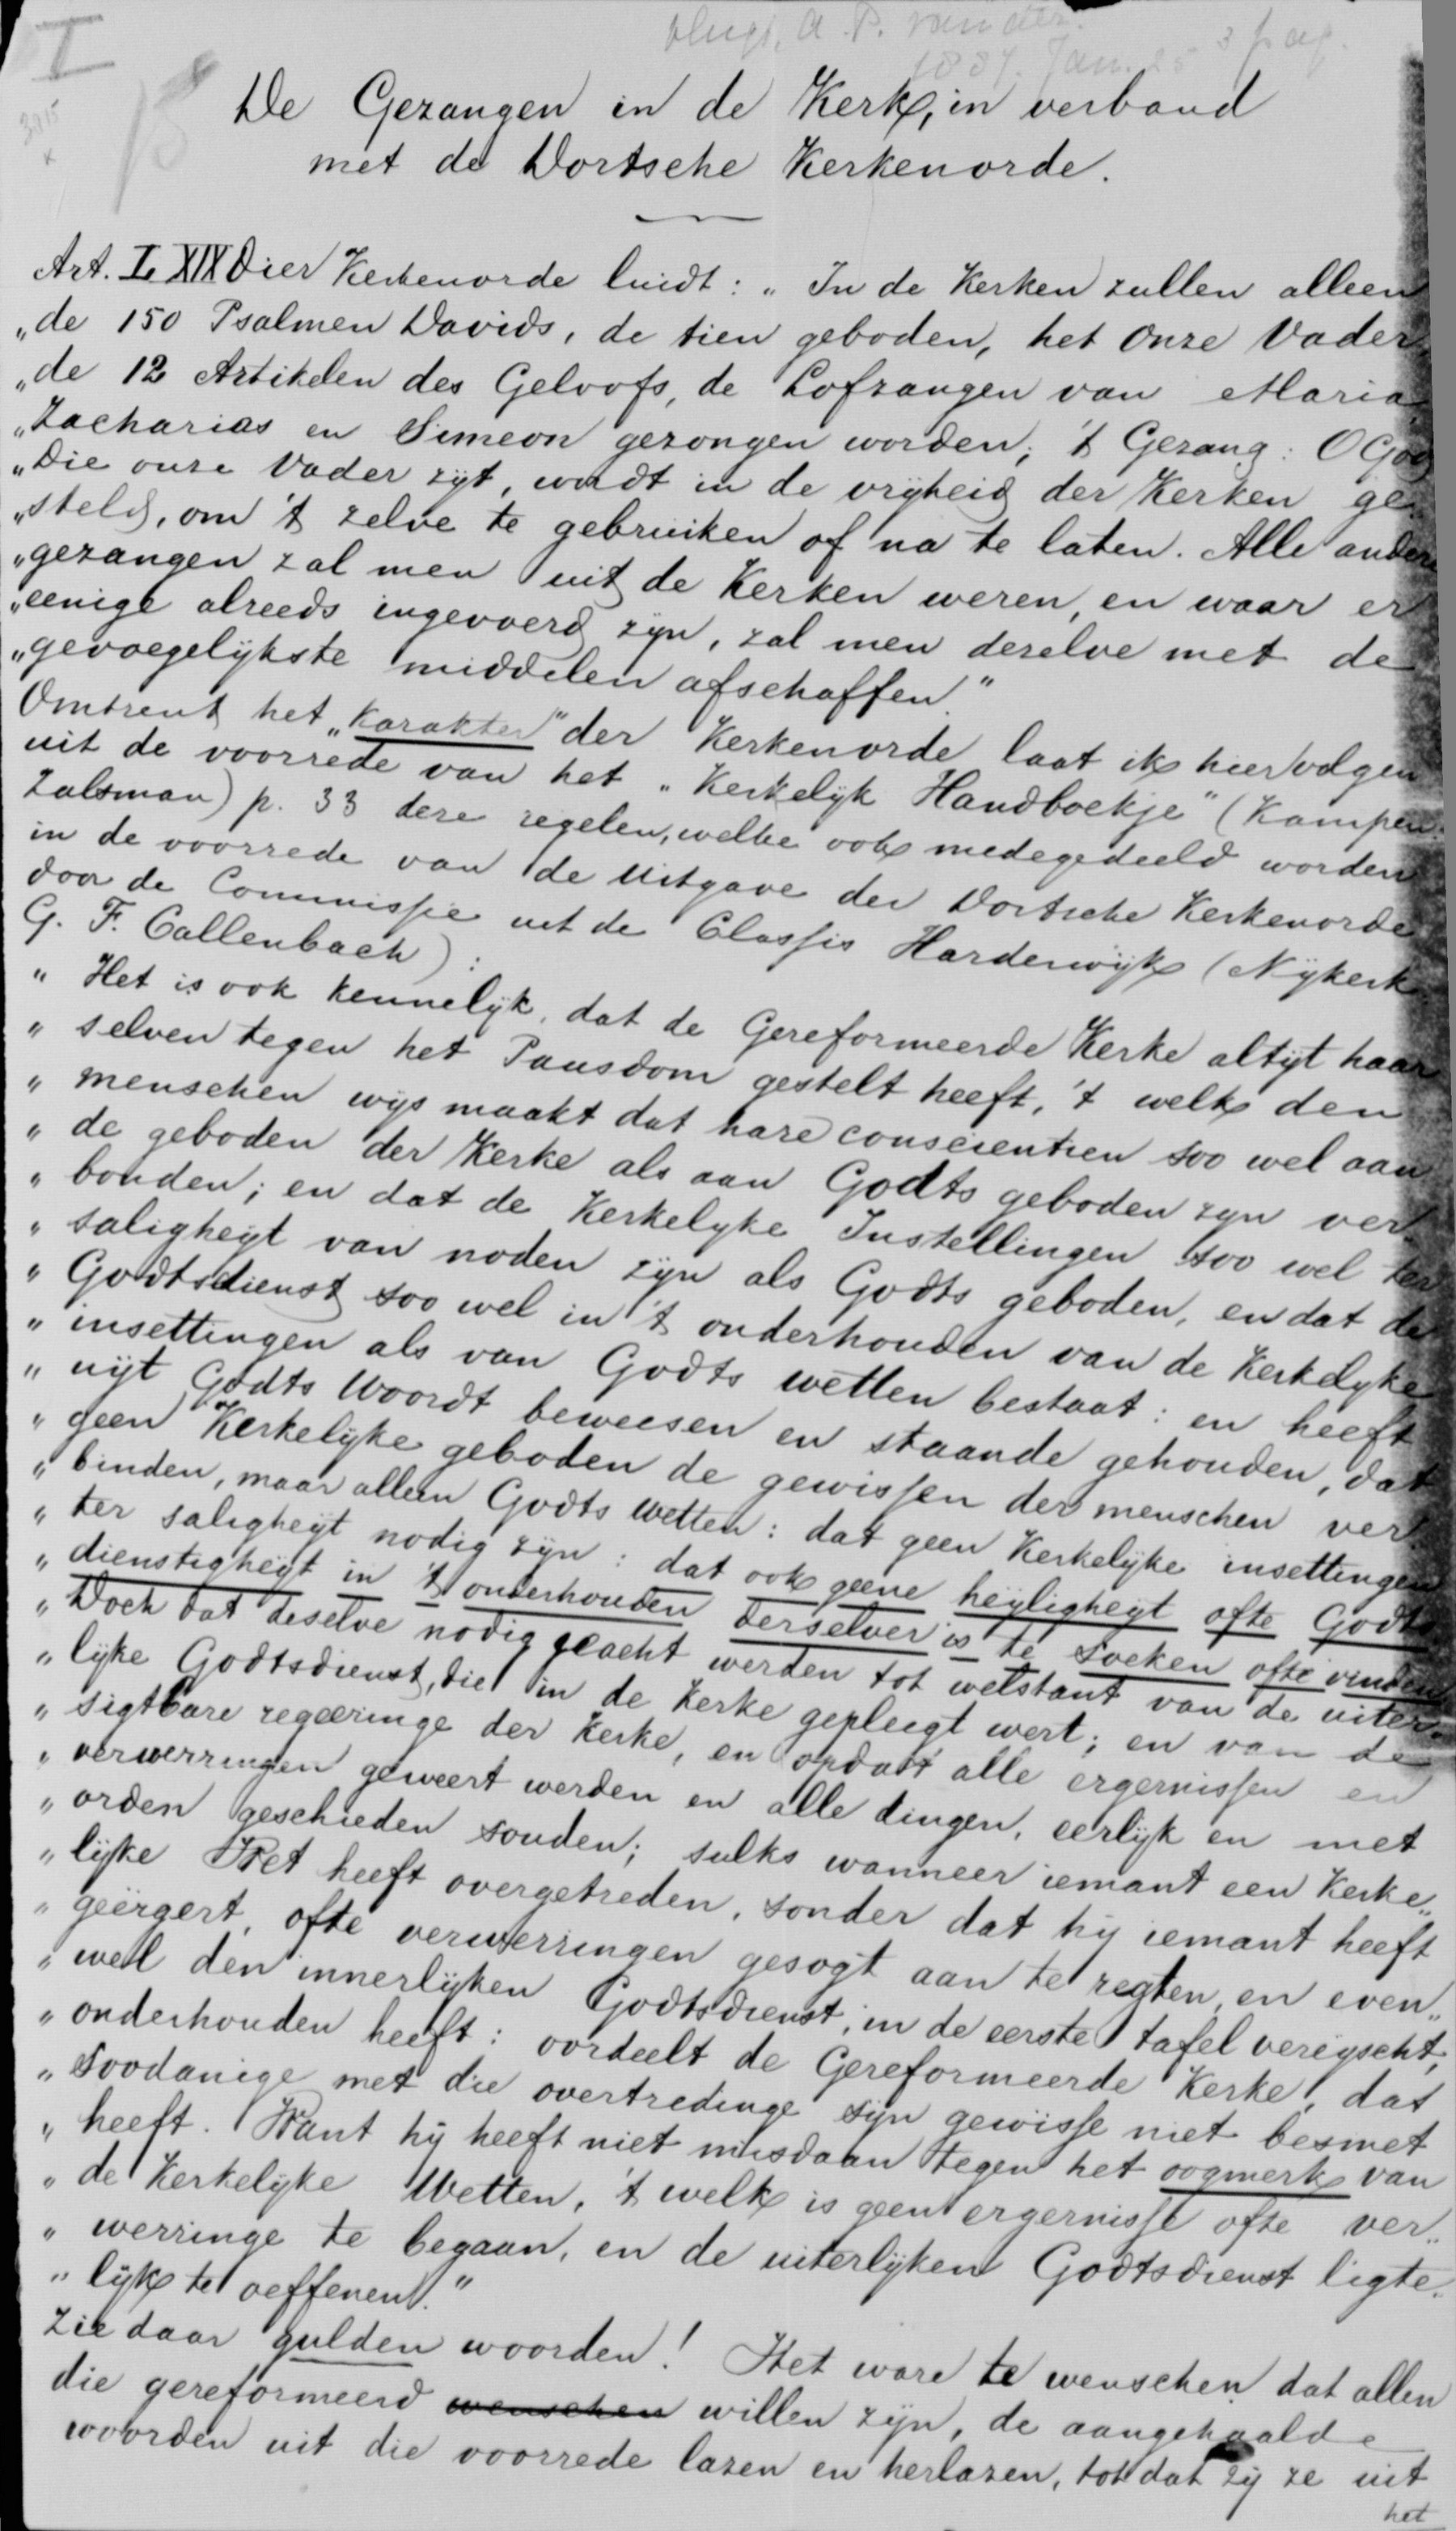 I
A. P. van der
1887. Jan. 25 3 pag.
3015
De Gezangen in de Kerk, in verband
met de Dortsche Kerkenorde.
Art. LXIX dier Kerkenorde luidt: „In de Kerken zullen alleen
„de 150 Psalmen Davids, de tien geboden, het Onze Vader
„de 12 Artikelen des Geloofs, de Lofzangen van Maria,
„Zacharias en Simeon gezongen worden; 't Gezang: O God
„Die onze Vader zijt, wordt in de vrijheid der Kerken ge
„steld, om 't zelve te gebruiken of na te laten. Alle andere
„gezangen zal men uit de Kerken weren, en waar er
„eenige alreeds ingevoerd zijn, zal men dezelve met de
„gevoegelijkste middelen afschaffen."
Omtrent het „Karakter" der Kerkenorde laat ik hier volgen
uit de voorrede van het „Kerkelijk Handboekje" (Kampen.
Zalsman) p. 33 deze regelen, welke ook medegedeeld worden
in de voorrede van de Uitgave der Dortsche Kerkenorde
door de Commissie uit de Classis Harderwijk (Nijkerk
G. F. Callenbach):
„Het is ook kennelijk, dat de Gereformeerde Kerke altijt haar
„selven tegen het Pausdom gestelt heeft, 't welk den
„menschen wijs maakt dat hare conscientien soo wel aan
„de geboden der Kerke als aan Godts geboden zijn ver
„bonden; en dat de Kerkelyke Instellingen soo wel ter
„saligheijt van noden zijn als Godts geboden, en dat de
„Godtsdienst soo wel in 't onderhouden van de Kerkelyke
„insettingen als van Godts wetten bestaat: en heeft
„uijt Godts Woordt beweesen en staande gehouden, dat
„geen Kerkelijke geboden de gewissen der menschen ver
„binden, maar alleen Godts wetten: dat geen Kerkelijke insettingen
„ter saligheijt nodig zijn: dat ook geene heijligheijt ofte Godts
„dienstigheijt in 't onderhouden derselver is te soeken ofte vinden
„Doch dat deselve nodig geacht werden tot welstant van de uiter„
„lijke Godtsdienst, die in de Kerke gepleegt wert; en van de
„sigtbare regeeringe der Kerke, en opdat alle ergernissen en
„verwerringen geweert werden en alle dingen, eerlijk en met
„orden geschieden souden; sulks wanneer iemant een Kerke„
„lijke Wet heeft overgetreden, sonder dat hij iemant heeft
„geërgert, ofte verwerringen gesogt aan te regten, en even„
„wel den innerlijken Godtsdienst, in de eerste tafel vereyscht,
„onderhouden heeft: oordeelt de Gereformeerde Kerke, dat
„soodanige met die overtredinge sijn gewisse niet besmet
„heeft. Want hij heeft niet misdaan tegen het oogmerk van
„de Kerkelijke Wetten, 't welk is geen ergernisse ofte ver„
„werringe te begaan, en de uiterlijken Godtsdienst ligte„
„lijk te oeffenen."
Zie daar gulden woorden! Het ware te wenschen dat allen
die gereformeerd wenschen willen zijn, de aangehaalde
woorden uit die voorrede lazen en herlazen, tot dat zij ze uit
het